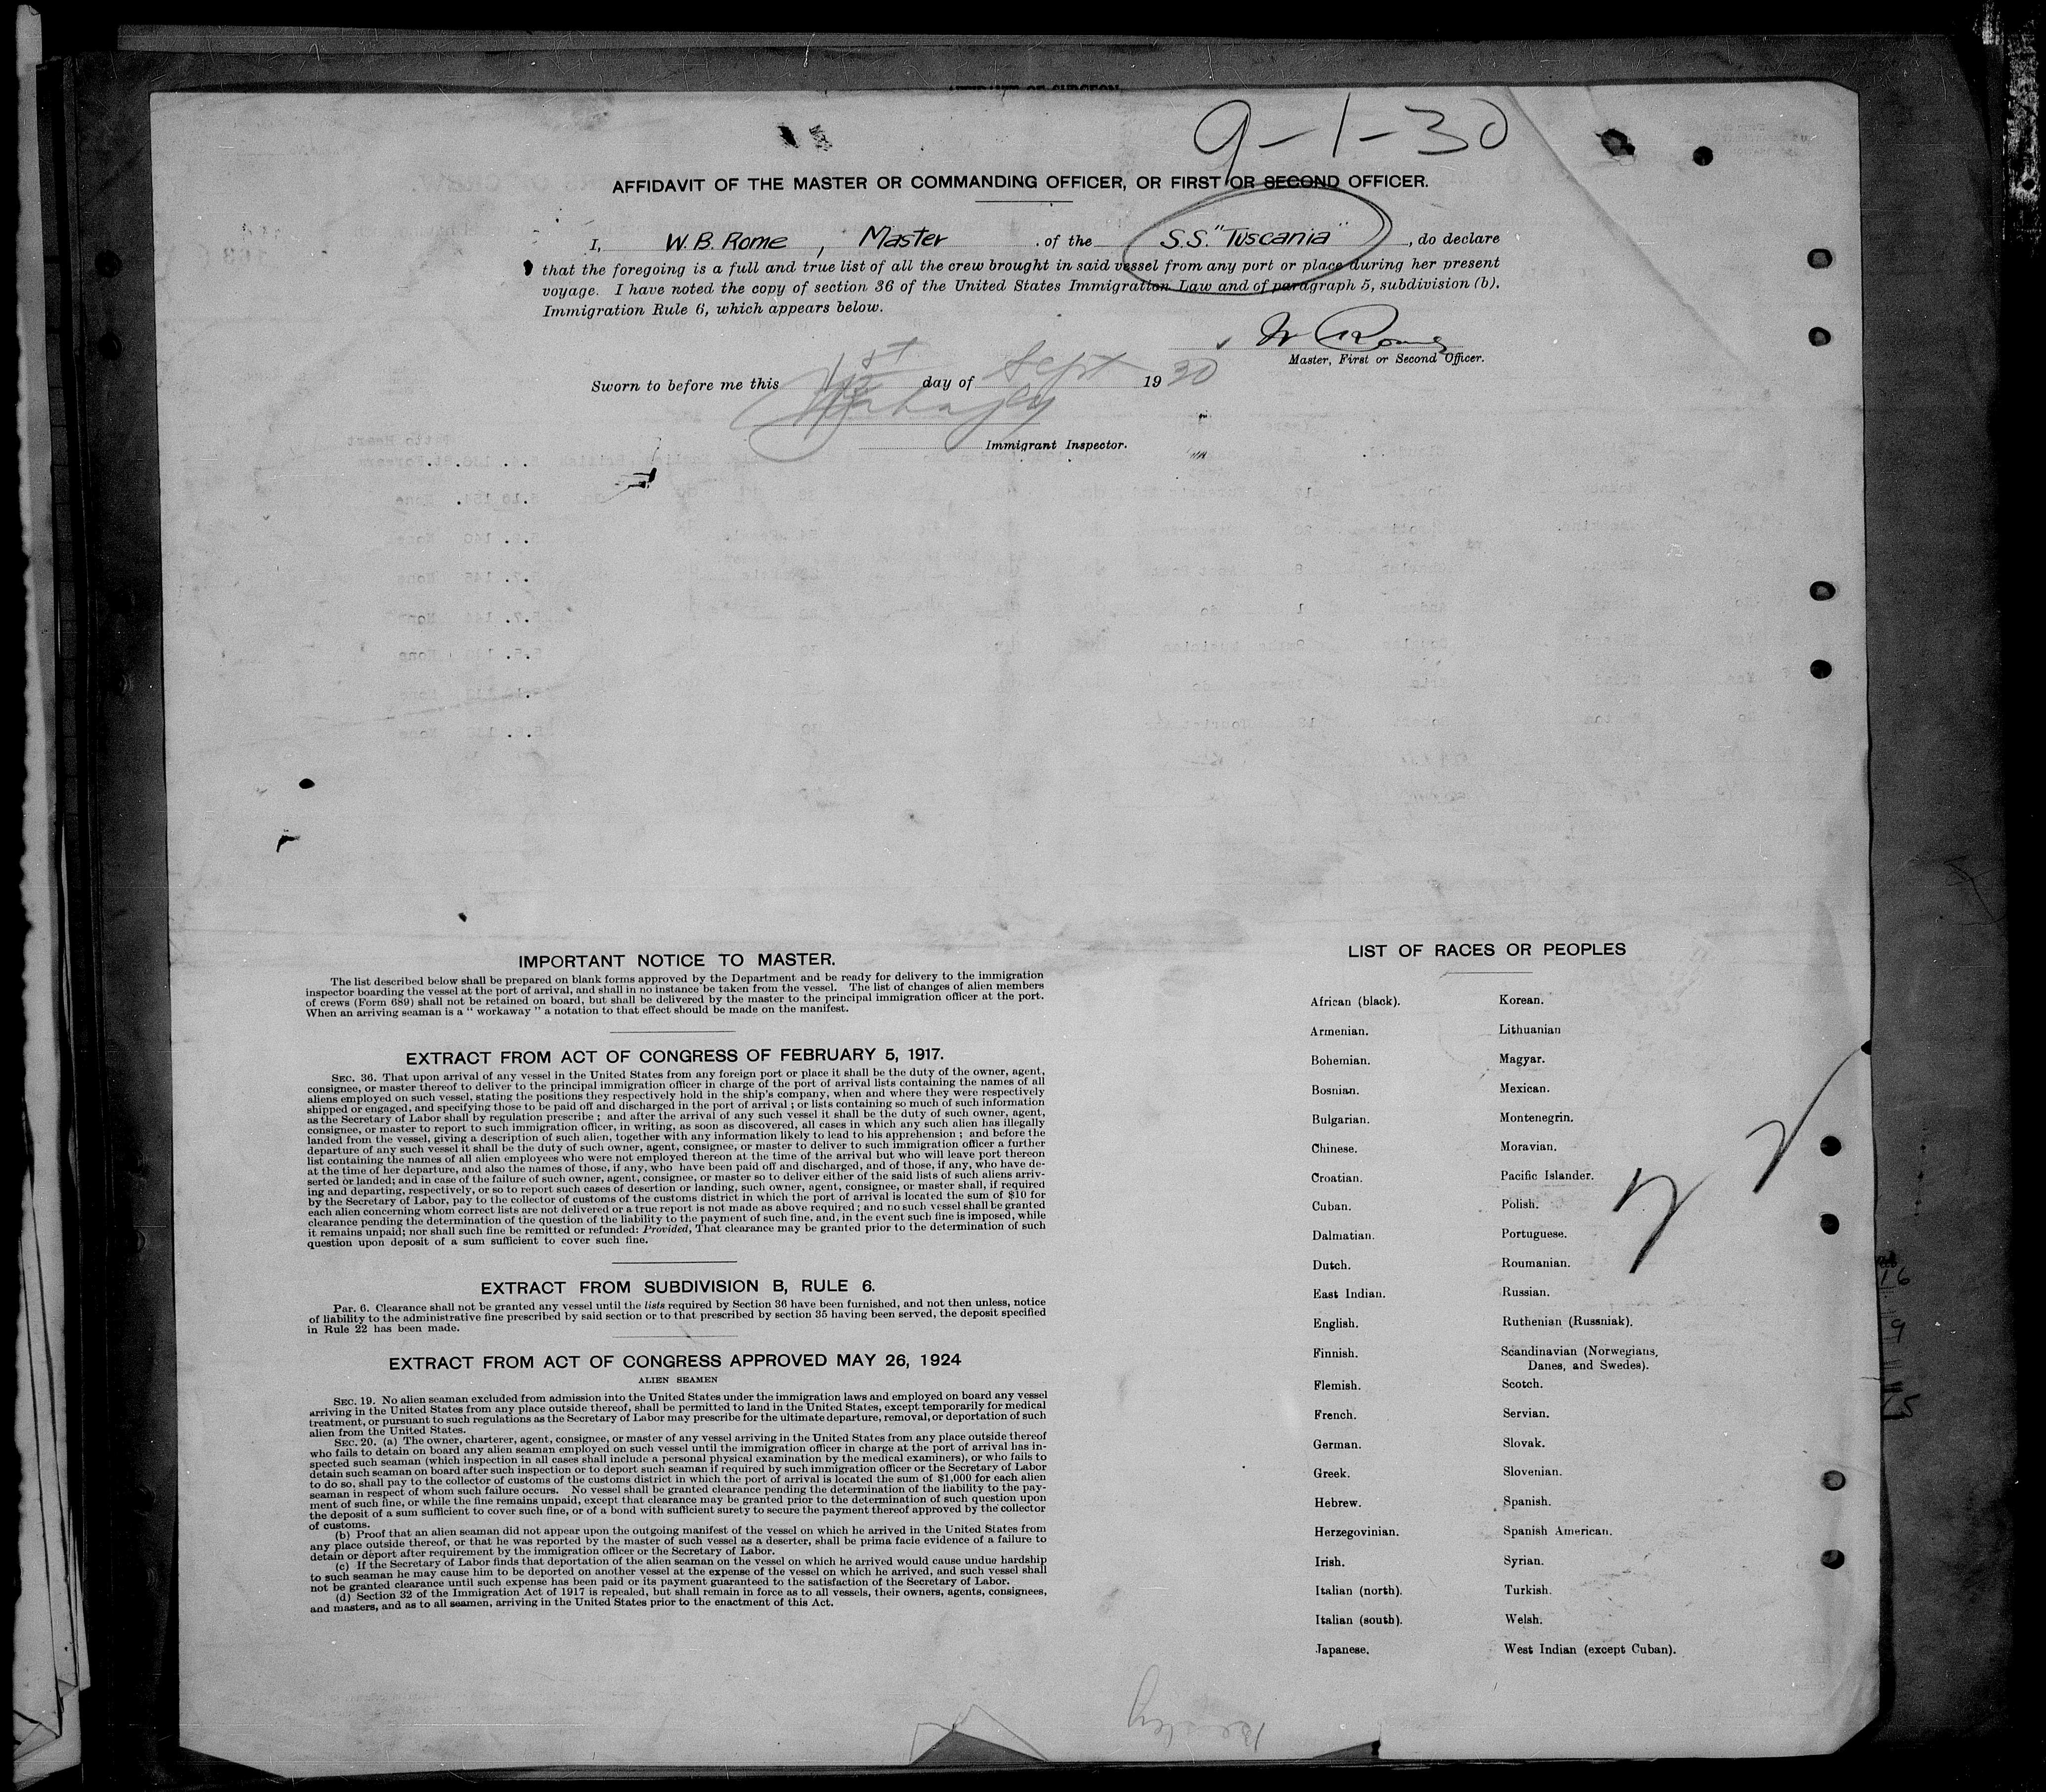 9-1-30
AFFIDAVIT OF THE MASTER OR COMMANDING OFFICER, OR FIRST OR SECOND OFFICER.
I, W. B. Rome, Master of the S.S. "Tuscania", do declare
that the foregoing is a full and true list of all the crew brought in said vessel from any port or place during her present
voyage. I have noted the copy of section 36 of the United States Immigration Law and of paragraph 5, subdivision (b).
Immigration Rule 6, which appears below.
Master, First or Second Officer.
Sworn to before me this 1st day of Sept 1930
Immigrant Inspector.
IMPORTANT NOTICE TO MASTER.
The list described below shall be prepared on blank forms approved by the Department and be ready for delivery to the immigration
inspector boarding the vessel at the port of arrival, and shall in no instance be taken from the vessel. The list of changes of alien members
of crews (Form 689) shall not be retained on board, but shall be delivered by the master to the principal immigration officer at the port.
When an arriving seaman is a " workaway " a notation to that effect should be made on the manifest.
EXTRACT FROM ACT OF CONGRESS OF FEBRUARY 5, 1917.
SEC. 36. That upon arrival of any vessel in the United States from any foreign port or place it shall be the duty of the owner, agent,
consignee, or master thereof to deliver to the principal immigration officer in charge of the port of arrival lists containing the names of all
aliens employed on such vessel, stating the positions they respectively hold in the ship's company, when and where they were respectively
shipped or engaged, and specifying those to be paid off and discharged in the port of arrival ; or lists containing so much of such information
as the Secretary of Labor shall by regulation prescribe ; and after the arrival of any such vessel it shall be the duty of such owner, agent,
consignee, or master to report to such immigration officer, in writing, as soon as discovered, all cases in which any such alien has illegally
landed from the vessel, giving a description of such alien, together with any information likely to lead to his apprehension ; and before the
departure of any such vessel it shall be the duty of such owner, agent, consignee, or master to deliver to such immigration officer a further
list containing the names of all alien employees who were not employed thereon at the time of the arrival but who will leave port thereon
at the time of her departure, and also the names of those, if any, who have been paid off and discharged, and of those, if any, who have de-
serted or landed; and in case of the failure of such owner, agent, consignee, or master so to deliver either of the said lists of such aliens arriv-
ing and departing, respectively, or so to report such cases of desertion or landing, such owner, agent, consignee, or master shall, if required
by the Secretary of Labor, pay to the collector of customs of the customs district in which the port of arrival is located the sum of $10 for
each alien concerning whom correct lists are not delivered or a true report is not made as above required ; and no such vessel shall be granted
clearance pending the determination of the question of the liability to the payment of such fine, and, in the event such fine is imposed, while
it remains unpaid; nor shall such fine be remitted or refunded: Provided, That clearance may be granted prior to the determination of such
question upon deposit of a sum sufficient to cover such fine.
EXTRACT FROM SUBDIVISION B, RULE 6.
Par. 6. Clearance shall not be granted any vessel until the lists required by Section 36 have been furnished, and not then unless, notice
of liability to the administrative fine prescribed by said section or to that prescribed by section 35 having been served, the deposit specified
in Rule 22 has been made.
EXTRACT FROM ACT OF CONGRESS APPROVED MAY 26, 1924
ALIEN SEAMEN
SEC. 19. No alien seaman excluded from admission into the United States under the immigration laws and employed on board any vessel
arriving in the United States from any place outside thereof, shall be permitted to land in the United States, except temporarily for medical
treatment, or pursuant to such regulations as the Secretary of Labor may prescribe for the ultimate departure, removal, or deportation of such
alien from the United States.
SEC. 20. (a) The owner, charterer, agent, consignee, or master of any vessel arriving in the United States from any place outside thereof
who fails to detain on board any alien seaman employed on such vessel until the immigration officer in charge at the port of arrival has in-
spected such seaman (which inspection in all cases shall include a personal physical examination by the medical examiners), or who fails to
detain such seaman on board after such inspection or to deport such seaman if required by such immigration officer or the Secretary of Labor
to do so, shall pay to the collector of customs of the customs district in which the port of arrival is located the sum of $1,000 for each alien
seaman in respect of whom such failure occurs. No vessel shall be granted clearance pending the determination of the liability to the pay-
ment of such fine, or while the fine remains unpaid, except that clearance may be granted prior to the determination of such question upon
the deposit of a sum sufficient to cover such fine, or of a bond with sufficient surety to secure the payment thereof approved by the collector
of customs.
(b) Proof that an alien seaman did not appear upon the outgoing manifest of the vessel on which he arrived in the United States from
any place outside thereof, or that he was reported by the master of such vessel as a deserter, shall be prima facie evidence of a failure to
detain or deport after requirement by the immigration officer or the Secretary of Labor.
(c) If the Secretary of Labor finds that deportation of the alien seaman on the vessel on which he arrived would cause undue hardship
to such seaman he may cause him to be deported on another vessel at the expense of the vessel on which he arrived, and such vessel shall
not be granted clearance until such expense has been paid or its payment guaranteed to the satisfaction of the Secretary of Labor.
(d) Section 32 of the Immigration Act of 1917 is repealed, but shall remain in force as to all vessels, their owners, agents, consignees,
and masters, and as to all seamen, arriving in the United States prior to the enactment of this Act.
LIST OF RACES OR PEOPLES
African (black). Korean.
Armenian. Lithuanian
Bohemian. Magyar.
Bosnian. Mexican.
Bulgarian. Montenegrin.
Chinese. Moravian.
Croatian. Pacific Islander.
Cuban. Polish.
Dalmatian. Portuguese.
Dutch. Roumanian.
East Indian. Russian.
English. Ruthenian (Russniak).
Finnish. Scandinavian (Norwegians,
Danes, and Swedes).
Flemish. Scotch.
French. Servian.
German. Slovak.
Greek. Slovenian.
Hebrew. Spanish.
Herzegovinian. Spanish American.
Irish. Syrian.
Italian (north). Turkish.
Italian (south). Welsh.
Japanese. West Indian (except Cuban).